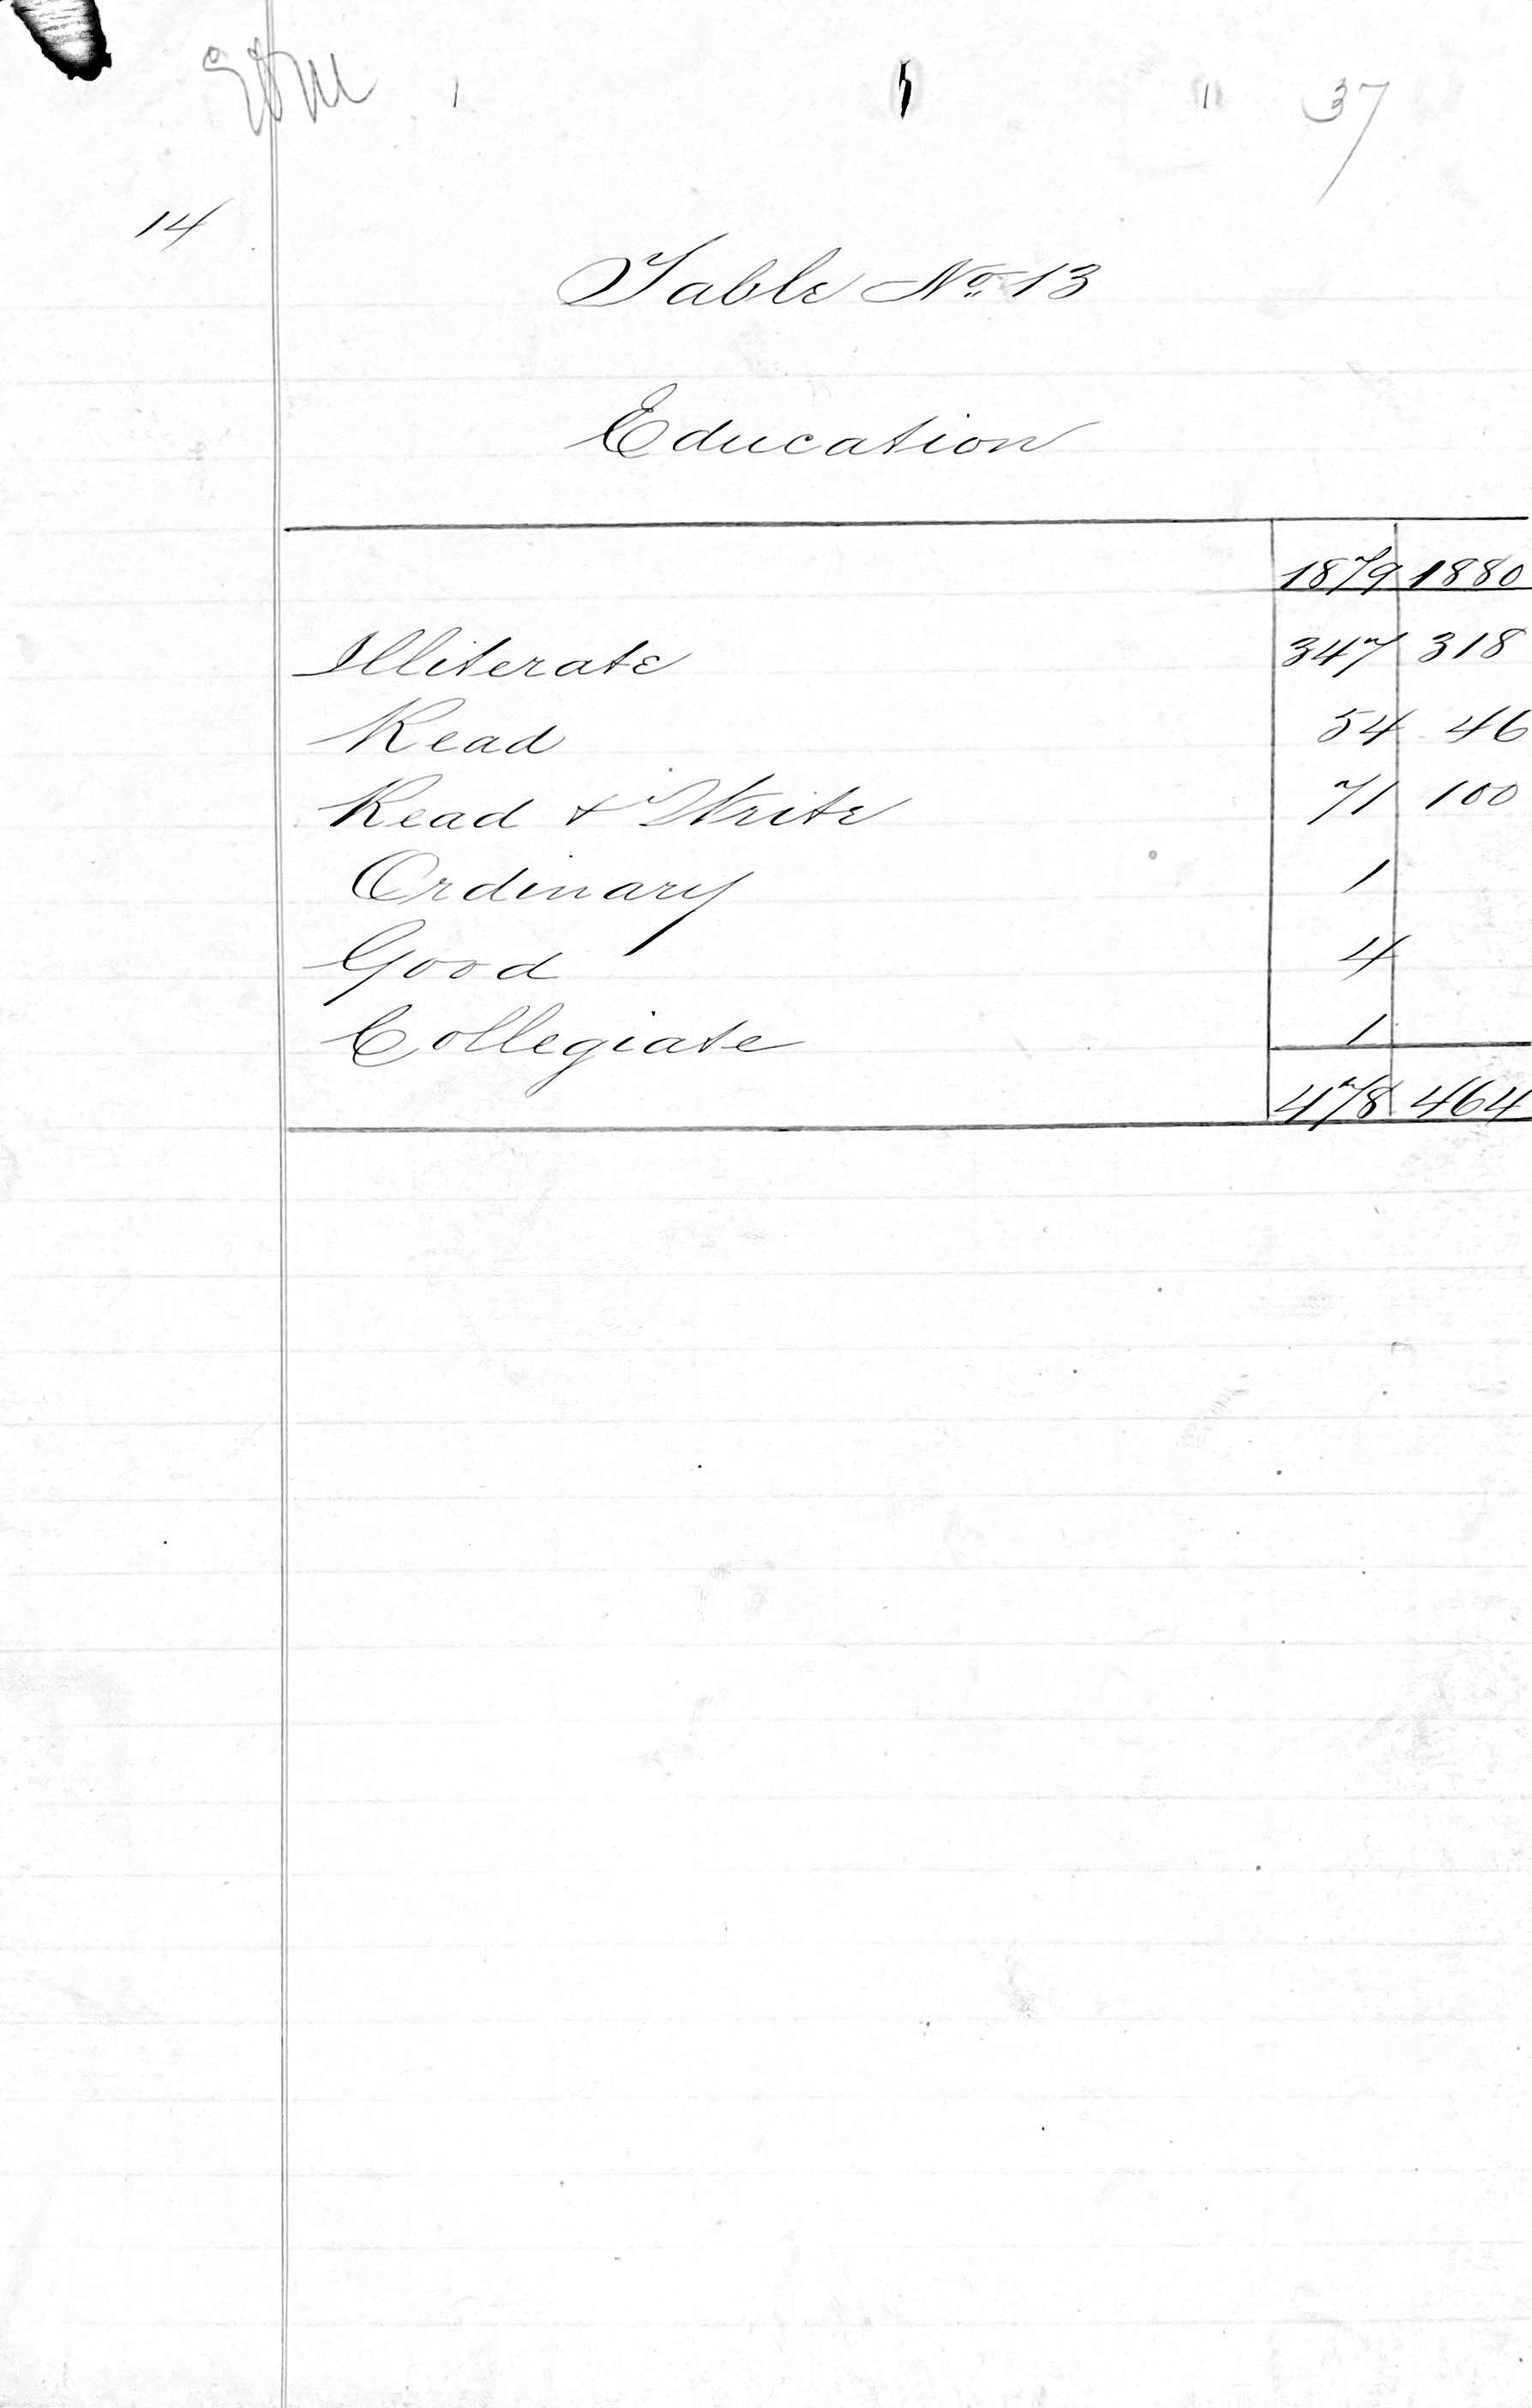 37
14
Table No. 13
Education
1879 1880
Illiterate 347 318
Read 54 46
Read & Write 71 100
Ordinary 1
Good 4
Collegiate 1
478 464